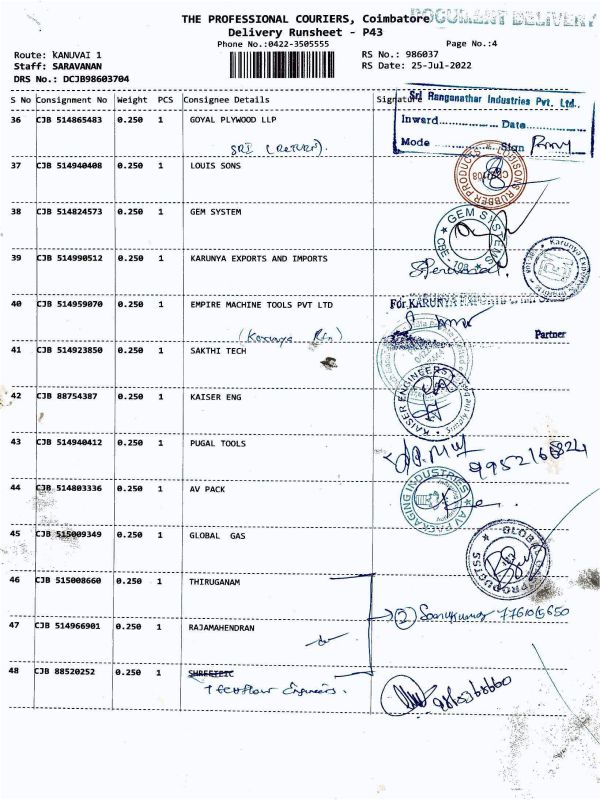 THE PROFESSIONAL COURIERS, Coimbatore
DOCUMENT DELIVERY
Delivery Runsheet - P43
Phone No.:0422-3505555
Page No.:4
Route: KANUVAI 1
RS No.: 986037
Staff: SARAVANAN
RS Date: 25-Jul-2022
DRS No.: DCJB98603704
S No Consignment No Weight PCS Consignee Details Signature
Sri Ranganathar Industries Pvt. Ltd.,
Inward Date
Mode Sign
36 CJB 514865483 0.250 1 GOYAL PLYWOOD LLP
SRI (Return).
37 CJB 514940408 0.250 1 LOUIS SONS
LOUISONS RUBBER PRODUCTS
38 CJB 514824573 0.250 1 GEM SYSTEM
GEM SYSTEMS
CBE - 108
39 CJB 514990512 0.250 1 KARUNYA EXPORTS AND IMPORTS
40 CJB 514959070 0.250 1 EMPIRE MACHINE TOOLS PVT LTD
For KARUNYA EXPORTS
Partner
41 CJB 514923850 0.250 1 SAKTHI TECH
42 CJB 88754387 0.250 1 KAISER ENG
KAISER ENGINEERS
43 CJB 514940412 0.250 1 PUGAL TOOLS
44 CJB 514803336 0.250 1 AV PACK
AV PACKAGING INDUSTRIES
45 CJB 515009349 0.250 1 GLOBAL GAS
GLOBAL GAS PRODUCTS
46 CJB 515008660 0.250 1 THIRUGANAM
2
47 CJB 514966901 0.250 1 RAJAMAHENDRAN
48 CJB 88520252 0.250 1
Techflow Engineers.